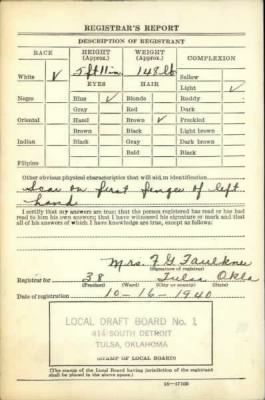 REGISTRAR'S REPORT
DESCRIPTION OF REGISTRANT
RACE
HEIGHT (Approx.)
WEIGHT (Approx.)
COMPLEXION
White ✓
5 ft 11 in.
148 lb
Sallow
EYES
HAIR
Light ✓
Negro
Blue ✓
Blonde
Ruddy
Gray
Red
Dark
Oriental
Hazel
Brown ✓
Freckled
Brown
Black
Light brown
Indian
Black
Gray
Dark brown
Bald
Black
Filipino
Other obvious physical characteristics that will aid in identification
Scar on first finger of left
hand
I certify that my answers are true; that the person registered has read or has had
read to him his own answers; that I have witnessed his signature or mark and that
all of his answers of which I have knowledge are true, except as follows:
Mrs. F G Faulkner
(Signature of registrar)
Registrar for 38 Tulsa Okla
(Precinct) (Ward) (City or county) (State)
Date of registration 10-16-1940
LOCAL DRAFT BOARD No. 1
414 SOUTH DETROIT
TULSA, OKLAHOMA
(STAMP OF LOCAL BOARD)
(The stamp of the Local Board having jurisdiction of the registrant
shall be placed in the above space.)